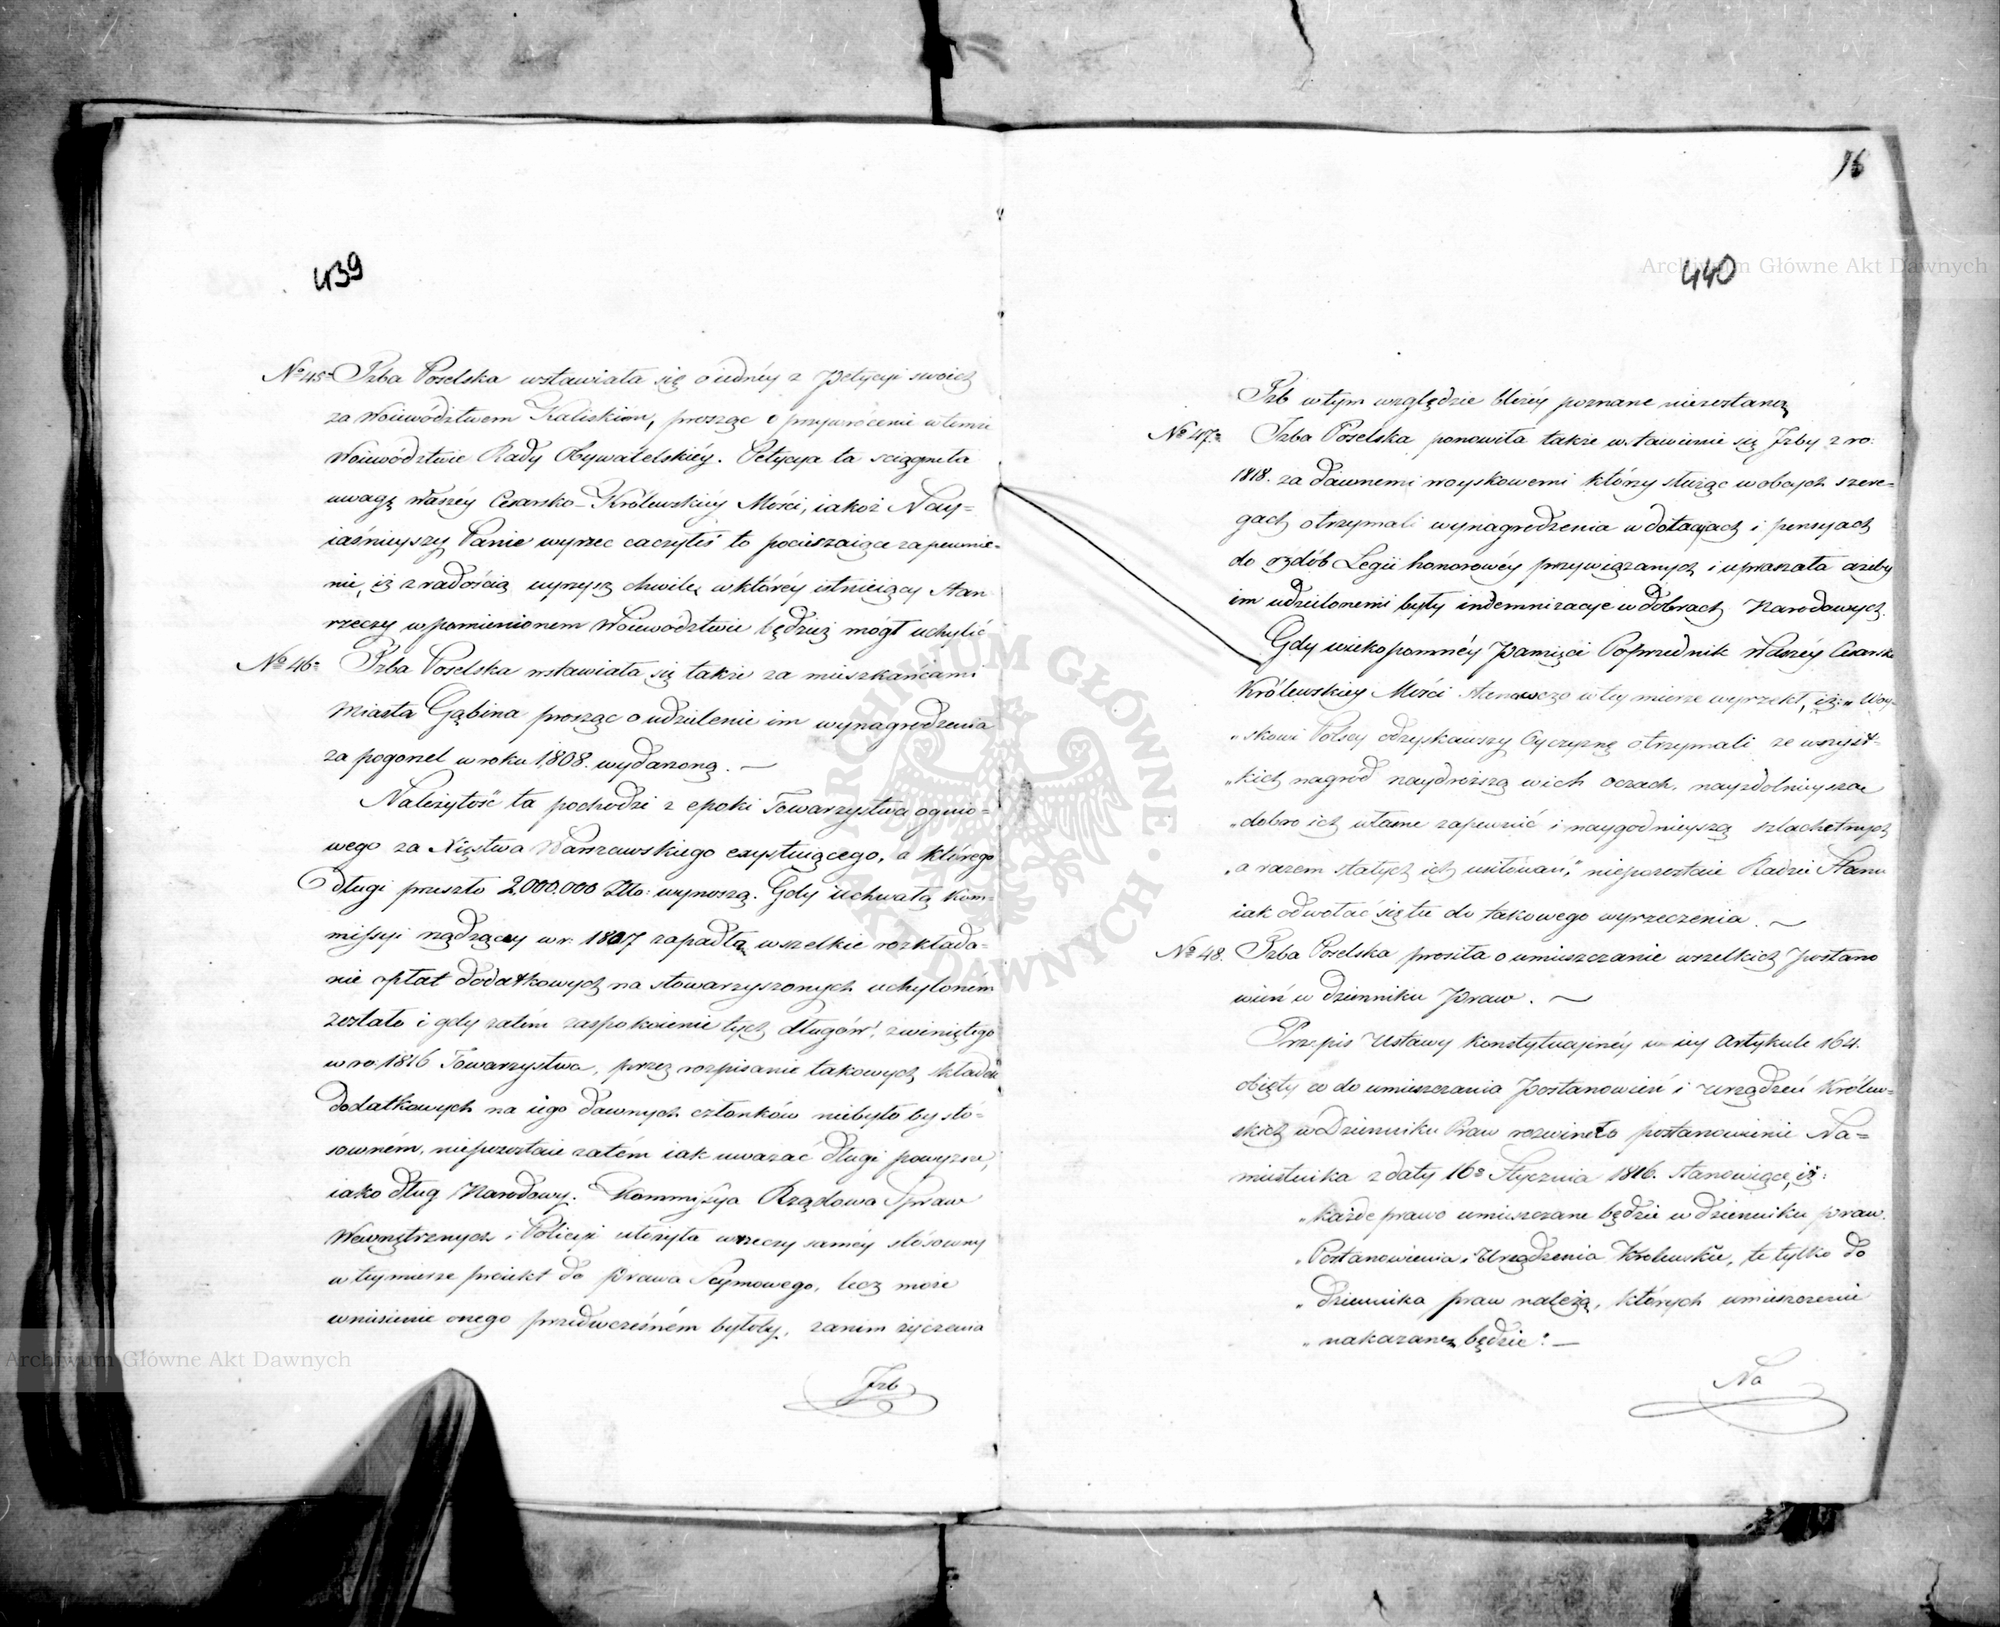 439
No 45. Izba Poselska wstawiała się o iednéy z Petycyi swoich
za Woiewództwem Kaliskiém, prosząc o przywrócenie w temże
Woiewództwie Rady Obywatelskiéy. Petycya ta sciągnęła
uwagę Waszéy Cesarsko-Królewskiéy Mości, iakoż Nay-
iaśnieyszy Panie wyrzec raczyłeś to pocieszaiące zapewnie-
nie, iż z radością uyrzysz chwilę w któréy istnieiący stan
rzeczy w pomienionem Woiewództwie będziesz mógł uchylić
No 46. Izba Poselska wstawiała się także za mieszkańcami
Miasta Gąbina prosząc o udzielenie im wynagrodzenia
za pogorzel w roku 1808. wydarzoną. —
Należytość ta pochodzi z epoki Towarzystwa ognio-
wego za Xięstwa Warszawskiego exystuiącego, a którego
długi przeszło 2,000.000 Zło: wynoszą. Gdy uchwałą Kom-
missyi rządzącey w r. 1807 zapadłą wszelkie rozkłada-
nie opłat dodatkowych na stowarzyszonych uchyloném
zostało i gdy zatém zaspokoienie tych długów, zwiniętego
w ro: 1816 Towarzystwa, przez rozpisanie takowych składek
dodatkowych na iego dawnych członków niebyło by stó-
sowném, niepozostaie zatém iak uważać długi powyższe,
iako dług Narodowy. Kommissya Rządowa Spraw
Wewnętrznych i Policyi ułożyła w rzeczy saméy stósowny
w tey mierze proiekt do prawa Seymowego, lecz może
wniesienie onego przedwcześném byłoby, zanim życzenia
Izb
76
440
Izb w tym względzie bliżéy poznane niezostaną
No 47. Izba Poselska ponowiła także wstawienie się Izby z ro:
1818. za dawnemi woyskowemi którzy służąc w obcych szere-
gach otrzymali wynagrodzenia w dotacyach i pensyach
do ozdób Legii honorowéy przywiązanych i upraszała ażeby
im udzielonemi były indemnizacye w dobrach Narodowych.
Gdy wiekopomnéy Pamięci Poprzednik Waszéy Cesarsko
Królewskiey Mości stanowczo w tey mierze wyrzekł, iż: „Woy-
„skowi Polscy odzyskawszy Oyczyznę otrzymali ze wszyst-
„kich nagród naydroższą w ich oczach, nayzdolnieyszą
„dobro ich własne zapewnić i naygodnieyszą szlachetnych
„a razem stałych ich usiłowań," niepozostaie Radzie Stanu
iak odwołać się tu do takowego wyrzeczenia. —
No 48. Izba Poselska prosiła o umieszczanie wszelkich Postano
wień w dzienniku Praw. —
Przepis Ustawy Konstytucyinéy w iey Artykule 164.
obięty co do umieszczania Postanowień i Urządzeń Królew-
skich w Dzienniku Praw rozwineło postanowienie Na-
miestnika z daty 16o Stycznia 1816. stanowiące, iż:
„każde prawo umieszczane będzie w dzienniku praw.
„Postanowienia i Urządzenia Królewskie, te tylko do
„dziennika praw należą, których umieszczenie
„nakazane będzie". —
Na
ARCHIWUM GŁÓWNE AKT DAWNYCH
Archiwum Główne Akt Dawnych
Archiwum Główne Akt Dawnych